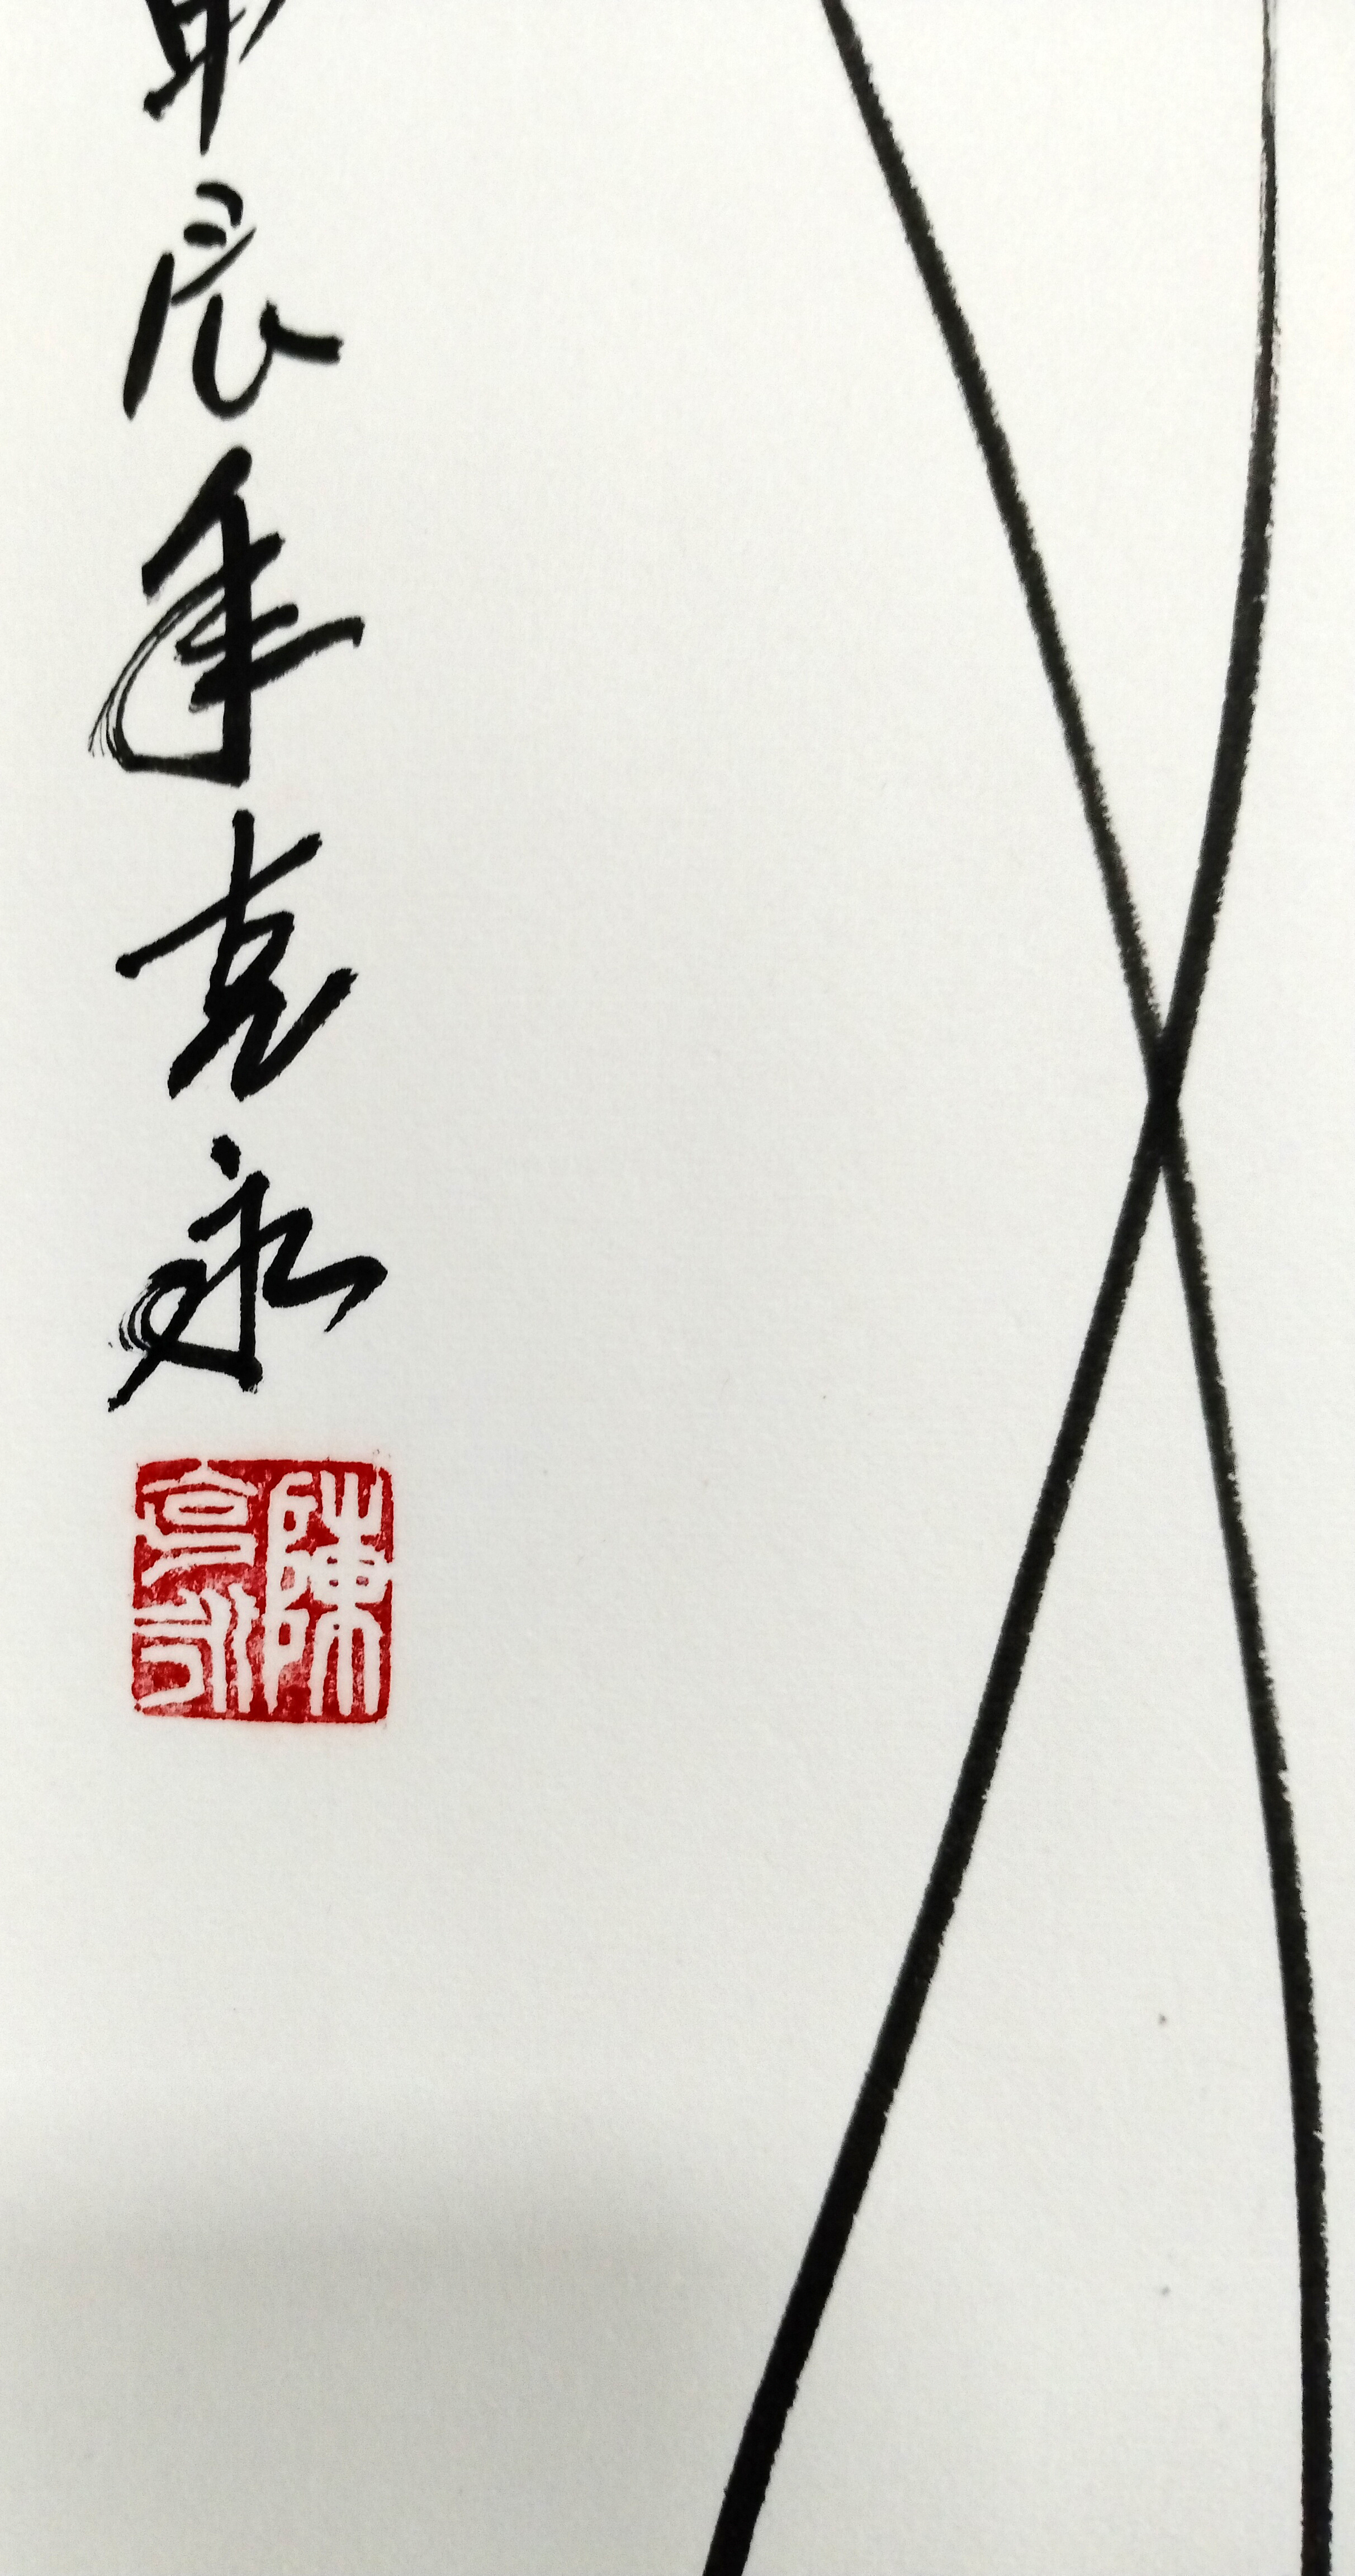 辰年克永
陳克永